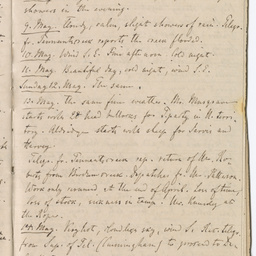 showers in the evening.
9. May. Cloudy, calm, slight showers of rain. Telegr.
fr. Tennants Creek reports the creek flooded.
10. May. Wind S.E. Fine afternoon cold night.
11. May. Beautiful day, cold night, wind S.E.
Sunday 12. May. The same.
13. May. The same fine weather. Mr. Musgrave
starts with 28 head bullocks for Tipaty in N. Terri-
tory. Aldridge starts with sheep for Servis and
Harvey.
Telegr. fr. Tennants Creek rep. return of Mr. Ro-
berts from Birdum Creek. Dispatches fr. Mr. Patterson
Work only resumed at the end of April. Loss of time,
loss of stock, sickness in camp. Mr. Kennedy at
the Roper.
14. May. Very hot, cloudless sky, wind S. Rec. telegr.
from Sup. of Tel. (Cunningham) to proceed to